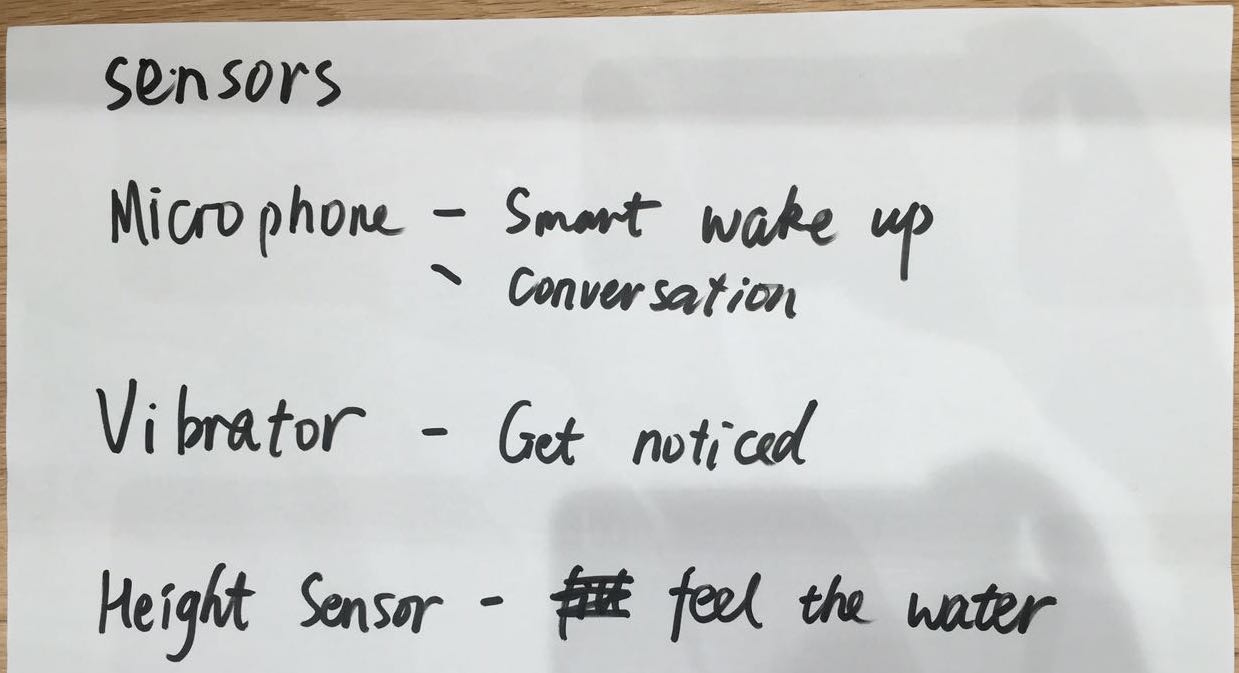 sensors
Microphone - Smart wake up
- Conversation
Vibrator - Get noticed
Height Sensor - feel the water